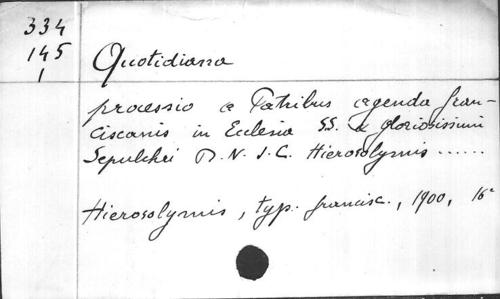 334
145
1
Quotidiana
processio a Patribus agenda fran-
ciscanis in Ecclesia SS. & gloriosissimi
Sepulchri D.N.J.C. Hierosolymis ......
Hierosolymis, typ. francisc., 1900, 16º